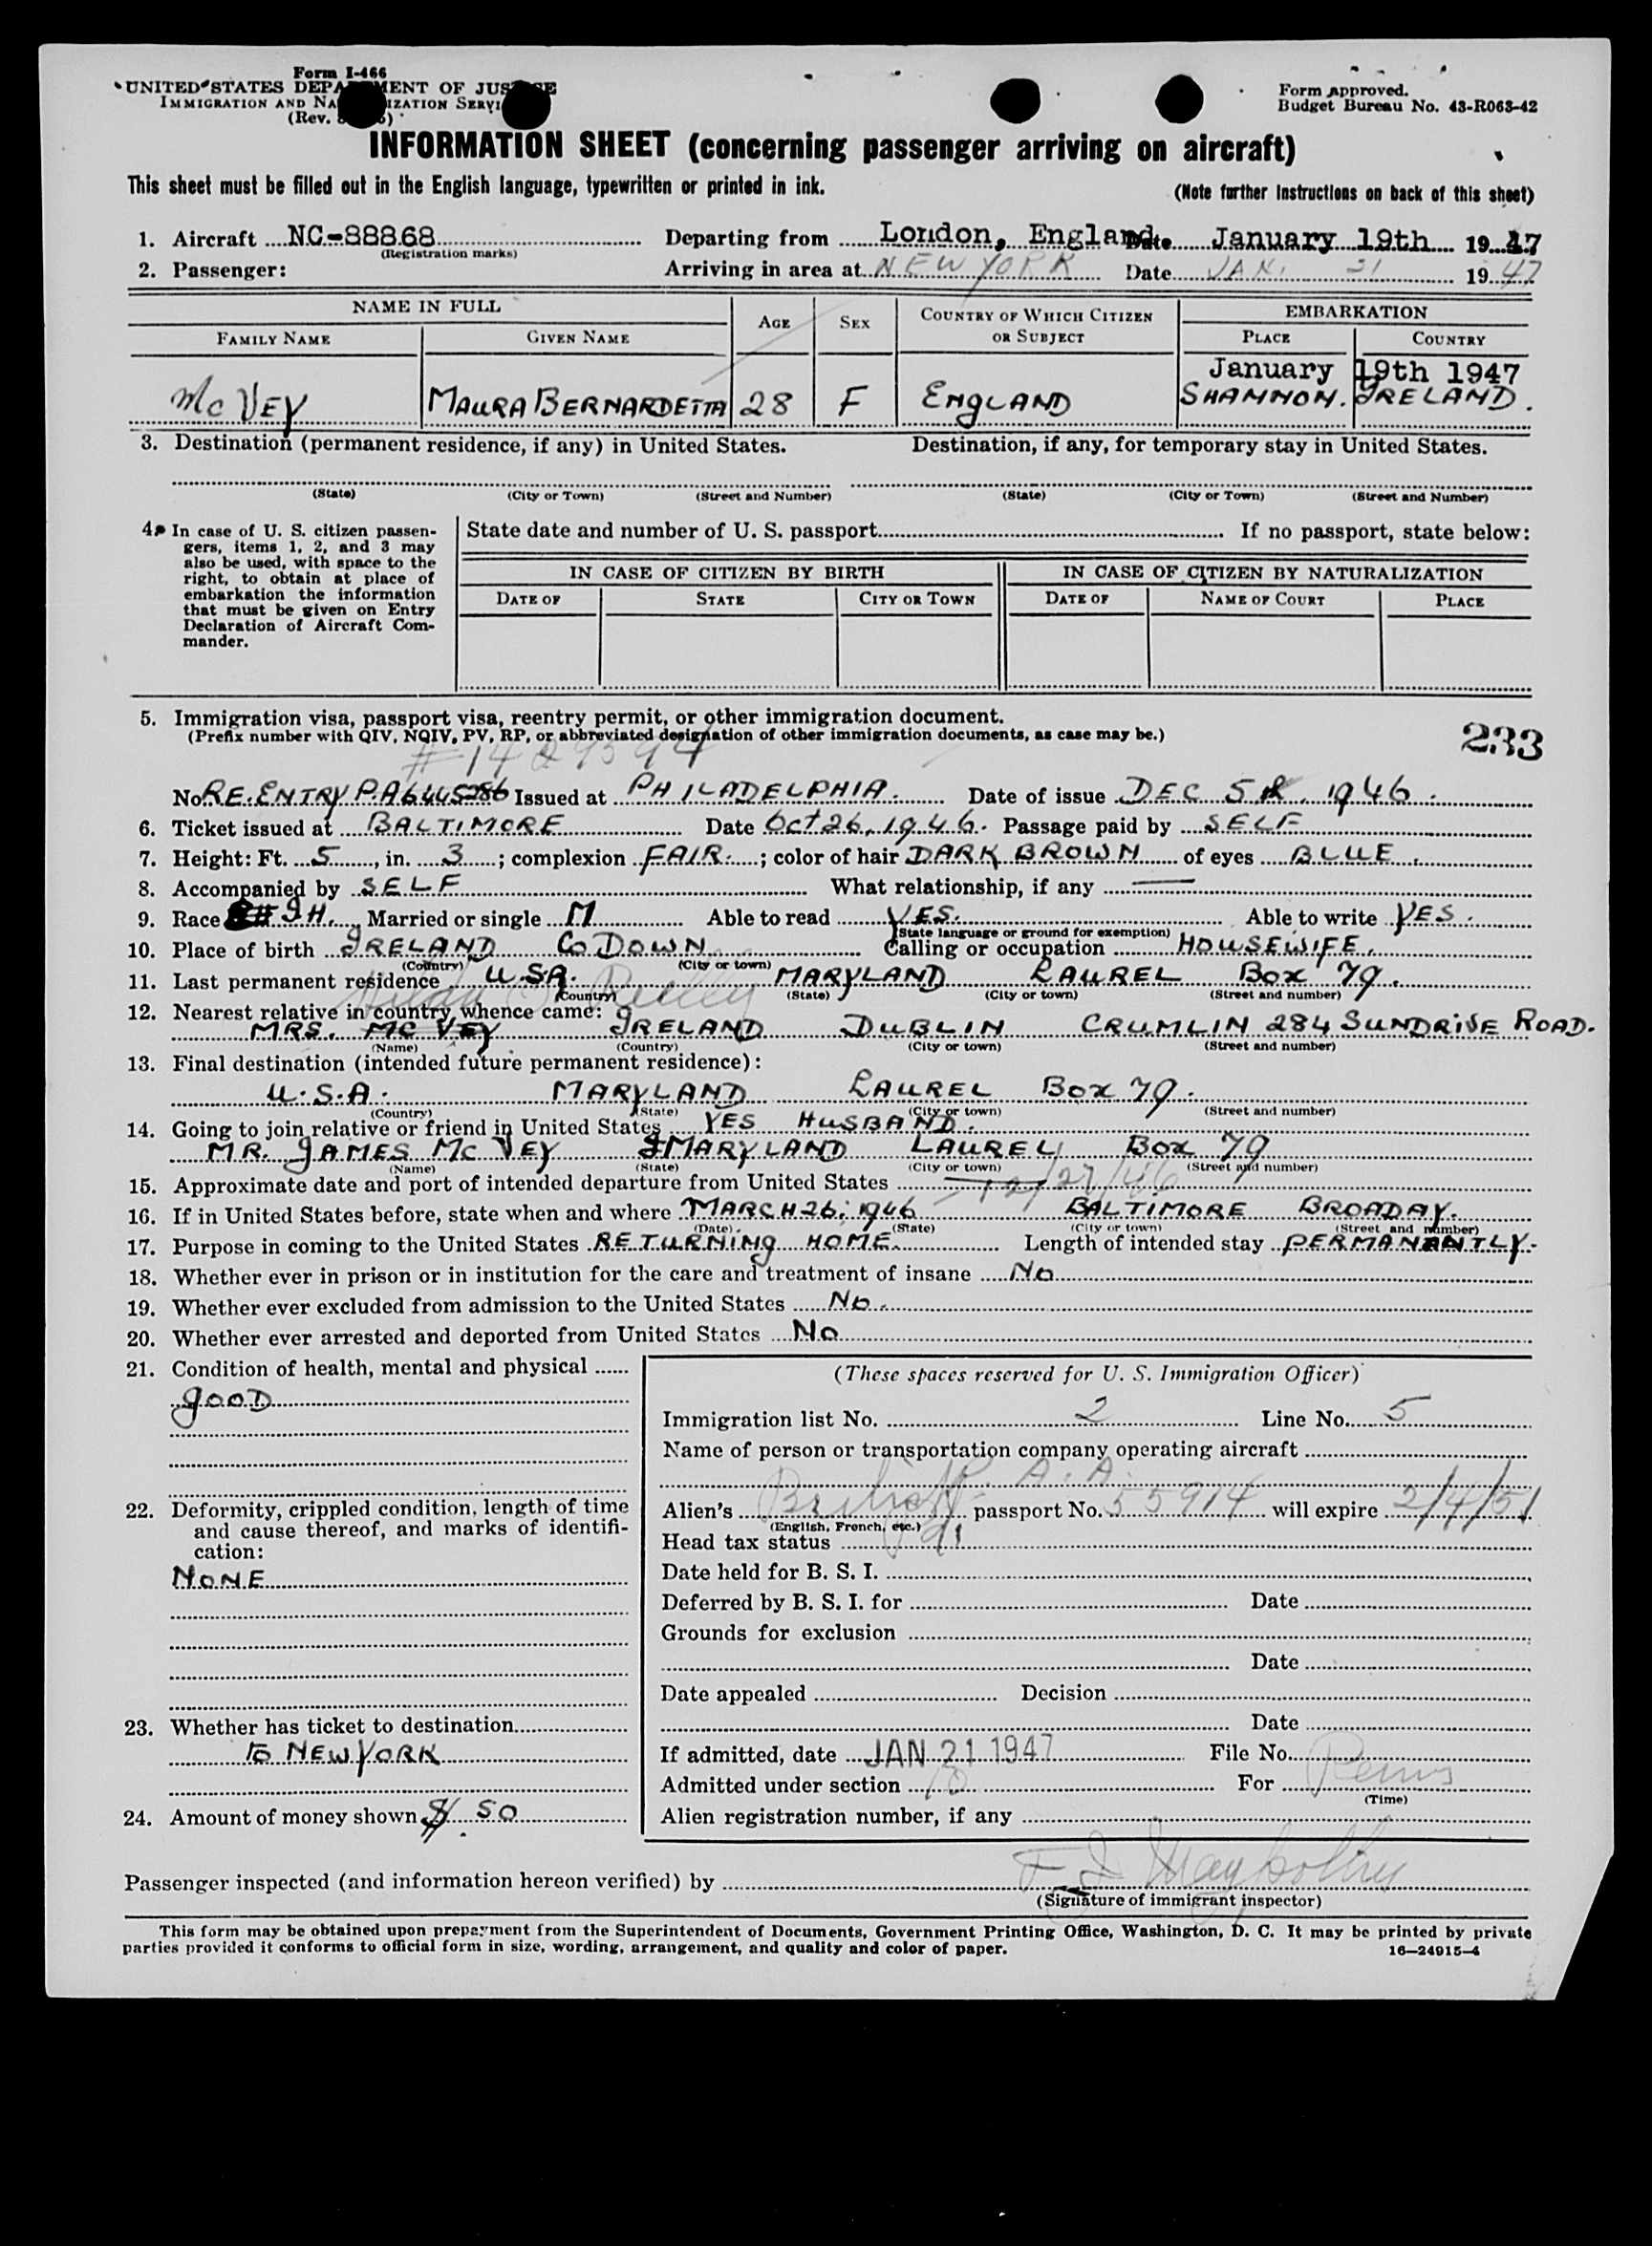 Form I-466
UNITED STATES DEPARTMENT OF JUSTICE
IMMIGRATION AND NATURALIZATION SERVICE
(Rev.
Form approved.
Budget Bureau No. 43-R063-42
INFORMATION SHEET (concerning passenger arriving on aircraft)
This sheet must be filled out in the English language, typewritten or printed in ink.
(Note further instructions on back of this sheet)
1. Aircraft NC-88868 Departing from London, England Date January 19th 1947
(Registration marks)
2. Passenger: Arriving in area at NEW YORK Date JAN. 21 1947
NAME IN FULL AGE SEX COUNTRY OF WHICH CITIZEN OR SUBJECT EMBARKATION
FAMILY NAME GIVEN NAME PLACE COUNTRY
January 19th 1947
Mc VEY MAURA BERNARDETTA 28 F ENGLAND SHANNON. IRELAND.
3. Destination (permanent residence, if any) in United States. Destination, if any, for temporary stay in United States.
(State) (City or Town) (Street and Number) (State) (City or Town) (Street and Number)
4. In case of U. S. citizen passen-
gers, items 1, 2, and 3 may
also be used, with space to the
right, to obtain at place of
embarkation the information
that must be given on Entry
Declaration of Aircraft Com-
mander.
State date and number of U. S. passport If no passport, state below:
IN CASE OF CITIZEN BY BIRTH IN CASE OF CITIZEN BY NATURALIZATION
DATE OF STATE CITY OR TOWN DATE OF NAME OF COURT PLACE
5. Immigration visa, passport visa, reentry permit, or other immigration document.
(Prefix number with QIV, NQIV, PV, RP, or abbreviated designation of other immigration documents, as case may be.)
233
#1429594
No. RE.ENTRY P.A6445286 Issued at PHILADELPHIA. Date of issue DEC 5 1946.
6. Ticket issued at BALTIMORE Date Oct 26, 1946. Passage paid by SELF
7. Height: Ft. 5, in. 3; complexion FAIR.; color of hair DARK BROWN of eyes BLUE.
8. Accompanied by SELF What relationship, if any —
9. Race IH. Married or single M Able to read YES. Able to write YES.
(State language or ground for exemption)
10. Place of birth IRELAND Co DOWN Calling or occupation HOUSEWIFE.
(Country) (City or town)
11. Last permanent residence U.S.A. MARYLAND LAUREL Box 79.
(Country) (State) (City or town) (Street and number)
12. Nearest relative in country whence came:
MRS. MC VEY IRELAND DUBLIN CRUMLIN 284 SUNDRIVE ROAD.
(Name) (Country) (City or town) (Street and number)
13. Final destination (intended future permanent residence):
U.S.A. MARYLAND LAUREL Box 79.
(Country) (State) (City or town) (Street and number)
14. Going to join relative or friend in United States YES HUSBAND.
MR. JAMES Mc VEY MARYLAND LAUREL Box 79
(Name) (State) (City or town) (Street and number)
15. Approximate date and port of intended departure from United States 12/27/46
16. If in United States before, state when and where MARCH 26, 1946 BALTIMORE BROADAY.
(Date) (State) (City or town) (Street and number)
17. Purpose in coming to the United States RETURNING HOME. Length of intended stay PERMANANTLY.
18. Whether ever in prison or in institution for the care and treatment of insane No
19. Whether ever excluded from admission to the United States No.
20. Whether ever arrested and deported from United States No
21. Condition of health, mental and physical
GOOD
22. Deformity, crippled condition, length of time
and cause thereof, and marks of identifi-
cation:
NONE
23. Whether has ticket to destination
To NEW YORK
24. Amount of money shown $. 50
(These spaces reserved for U. S. Immigration Officer)
Immigration list No. 2 Line No. 5
Name of person or transportation company operating aircraft
P. A. A.
Alien's British passport No. 55914 will expire 2/4/51
(English, French, etc.)
Head tax status
Date held for B. S. I.
Deferred by B. S. I. for Date
Grounds for exclusion
Date
Date appealed Decision
Date
If admitted, date JAN 21 1947 File No.
Admitted under section For Perm
(Time)
Alien registration number, if any
Passenger inspected (and information hereon verified) by
(Signature of immigrant inspector)
This form may be obtained upon prepayment from the Superintendent of Documents, Government Printing Office, Washington, D. C. It may be printed by private
parties provided it conforms to official form in size, wording, arrangement, and quality and color of paper.
16—24915-4